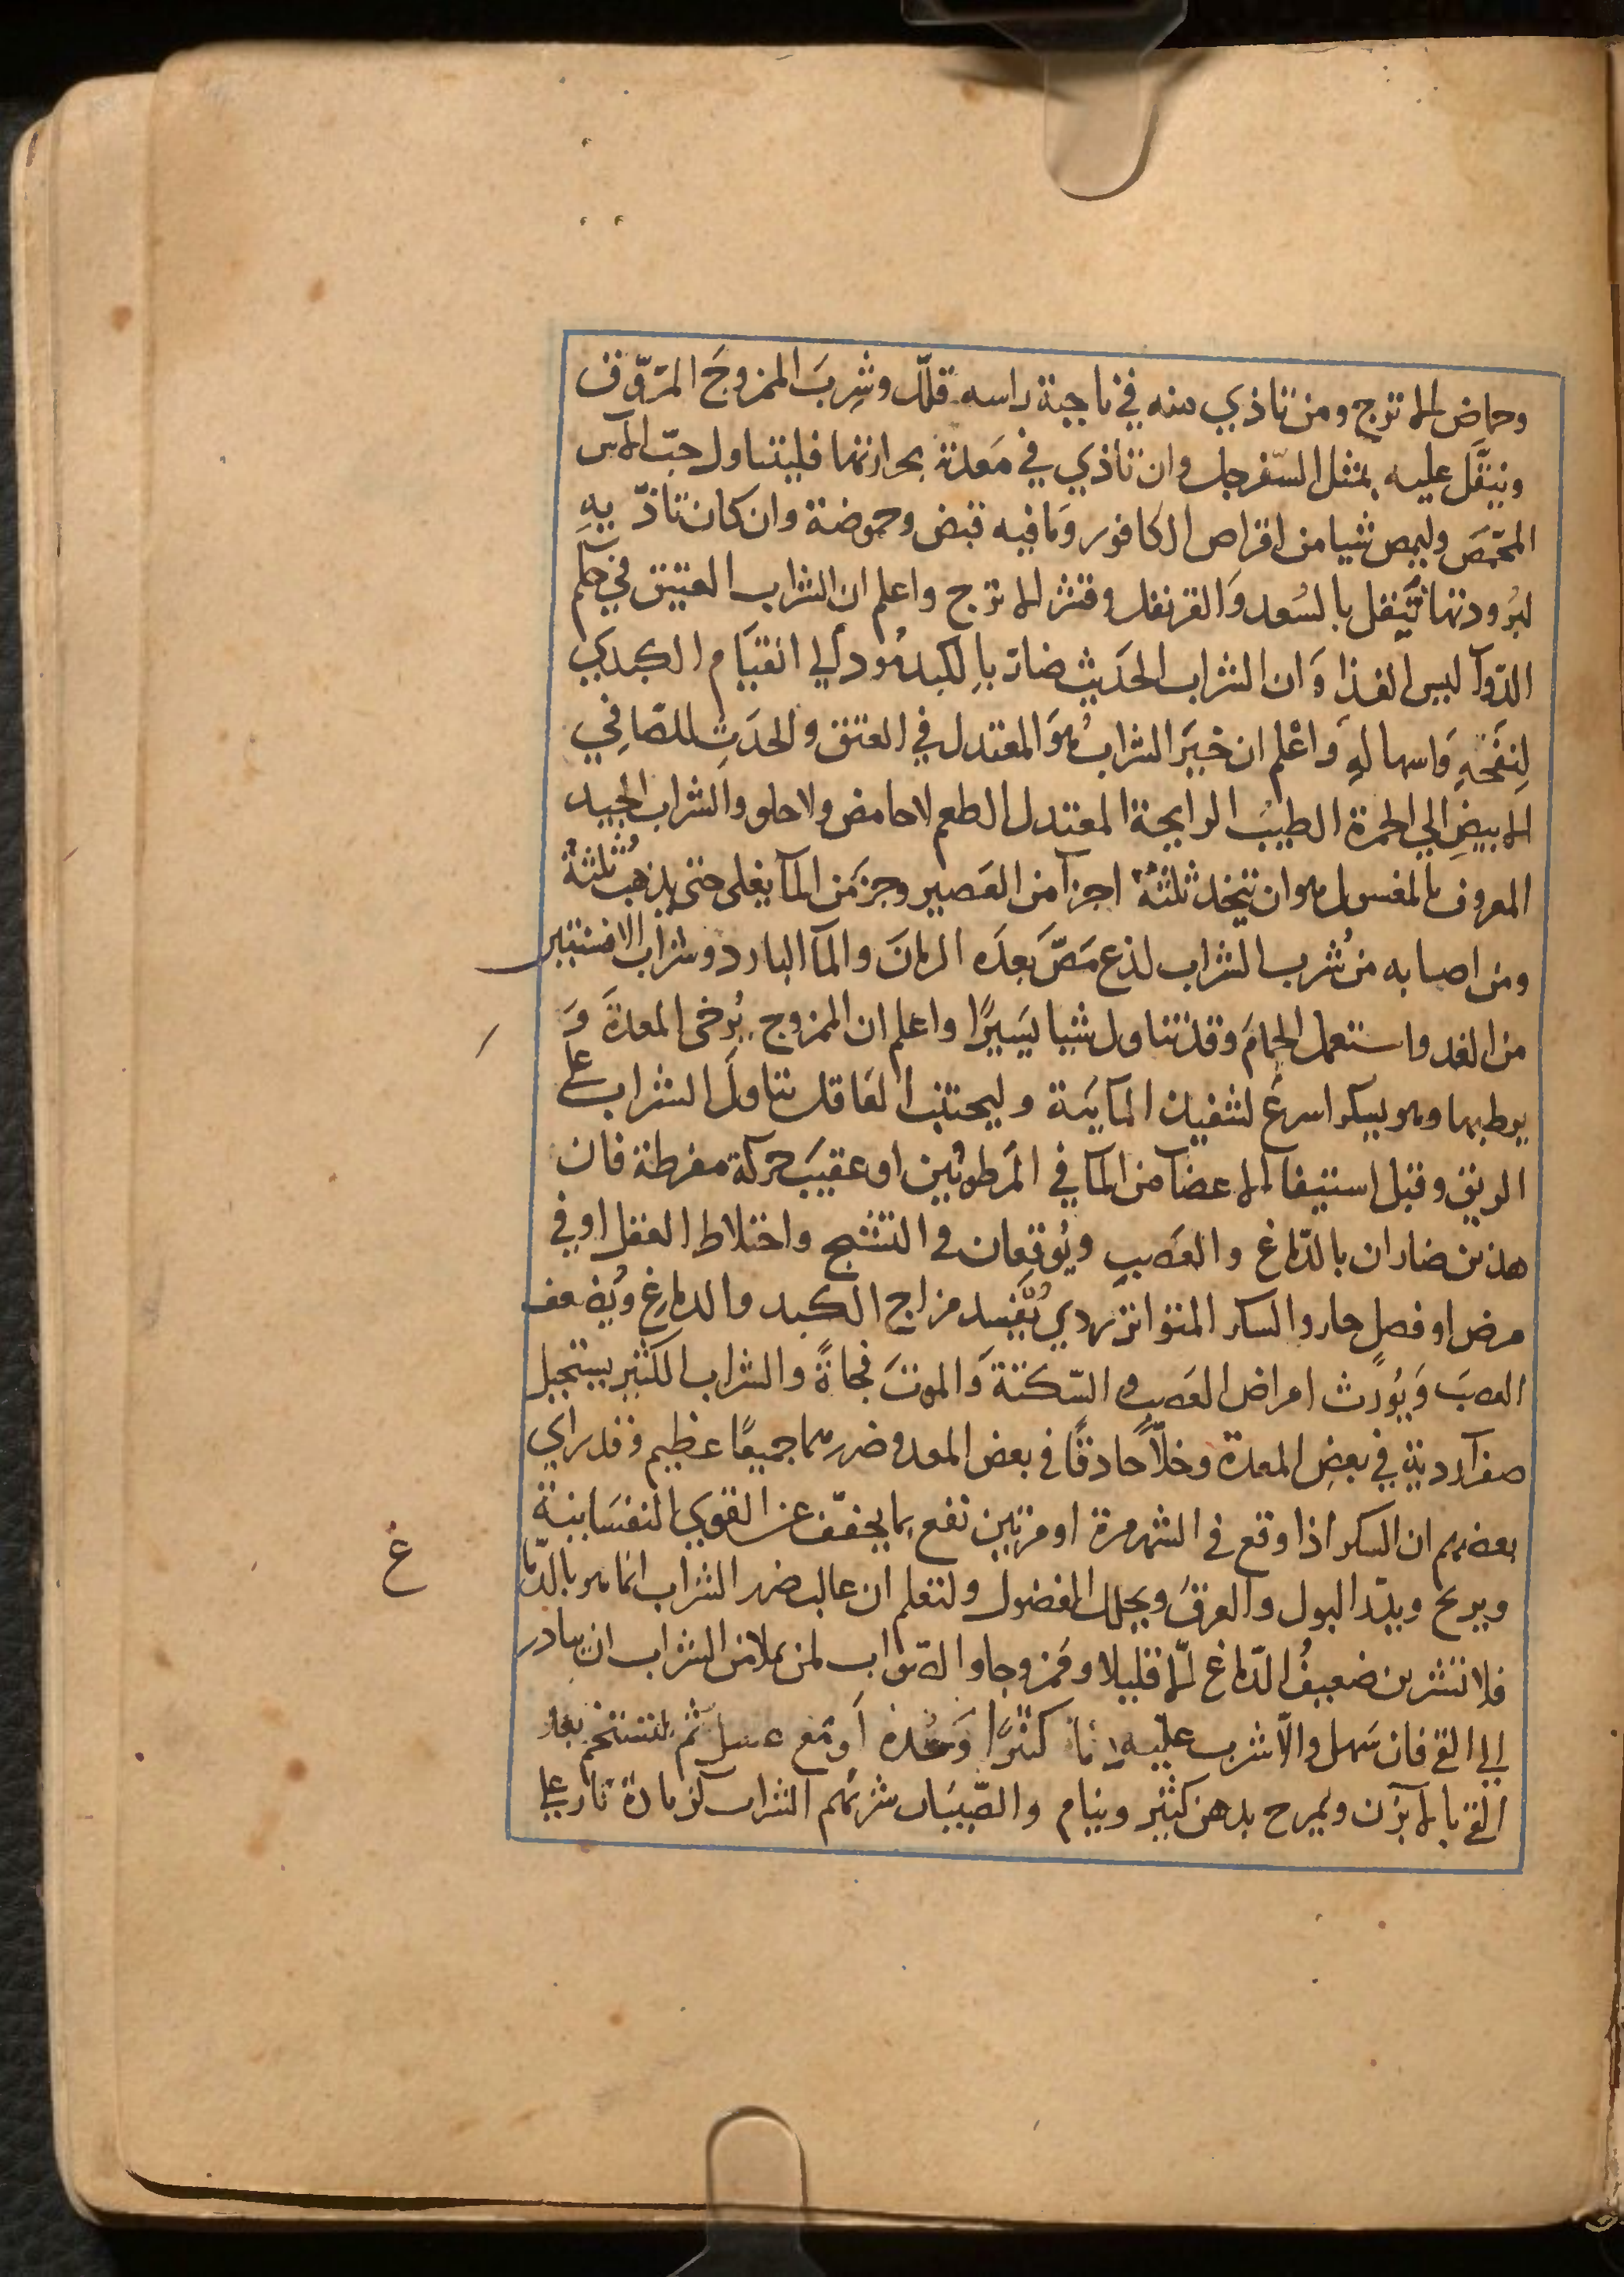 وحماض الاترج ومن تاذي منه في ناحية راسه قلل وشرب الممزوج المروّق
وينتقل عليه بمثل السفرجل وان تاذي في معدته بحرارتها فليتناول حبّ الآس
المحمّص وليمص شيا من اقراص الكافور وما فيه قبض وحموضة وان كان تاذّيهِ
لبرودتها تنقل بالسعد والقرنفل وقشر الاترج واعلم ان الشراب العتيق في حكم
الدوآ ليس الغذا وان الشراب الحديث ضار بالكبد مود الي القيام الكبدي
لنفخه واسهاله واعلم ان خير الشراب هو المعتدل في العتق والحدث للصافي
الابيض الي الحمرة الطيب الرايحة المعتدل الطعم لا حامض ولا حلو والشراب الجيد
المعروف بالمغسول هو ان يتخذ ثلثة اجزآ من العصير وجز من المآ يغلى حتى يذهب ثلثهُ
ومن اصابه من شرب الشراب لذع مصّ بعده الرمان والمآ البارد وشراب الافسنتين
من الغد واستعمل الحمام وقد تناول شيا يسيرًا واعلم ان الممزوج يُرخي المعدة وَ
يرطبها وهو يسكر اسرع لتنفيذ المآيية وليجتنب العاقل تناول الشراب على
الريق وقبل استيفا الاعضآ من المآ في المرطوبين او عقيب حركة مفرطة فان
هذين ضاران بالدّماغ والعصب ويُوقعان في التشنج واختلاط العقل او في
مرض او فصل حار والسكر المتواتر ردي يُفسد مزاج الكبد والدماغ ويُضعف
العصب ويُورث امراض العصب والسّكتة والموت فجاةً والشراب الكثير يستحيل
صفرآ ردية في بعض المعدة وخلّاً حاذقًا في بعض المعد وضررهما جميعًا عظيم وقد راي
بعضهم ان السكر اذا وقع في الشهر مرة او مرتين نفع بما يخفّف عن القوي النفسانية
ويريح ويدرّ البول والعرق ويحلل الفضول ولتعلم ان غالب ضرر الشراب انما هو بالدّما
غ
فلا تشربن ضعيف الدّماغ الّا قليلا وممزوجا والصواب لمن يملا من الشراب ان يبادر
الي القي فان سهل والّا شرب عليه مآ كثيرًا وحده أو مع عسل ثم لتستحم بعد
القي بالابزن ويمرح بدهن كثير وينام والصّبيان شربهم الشراب كزيادة نار على